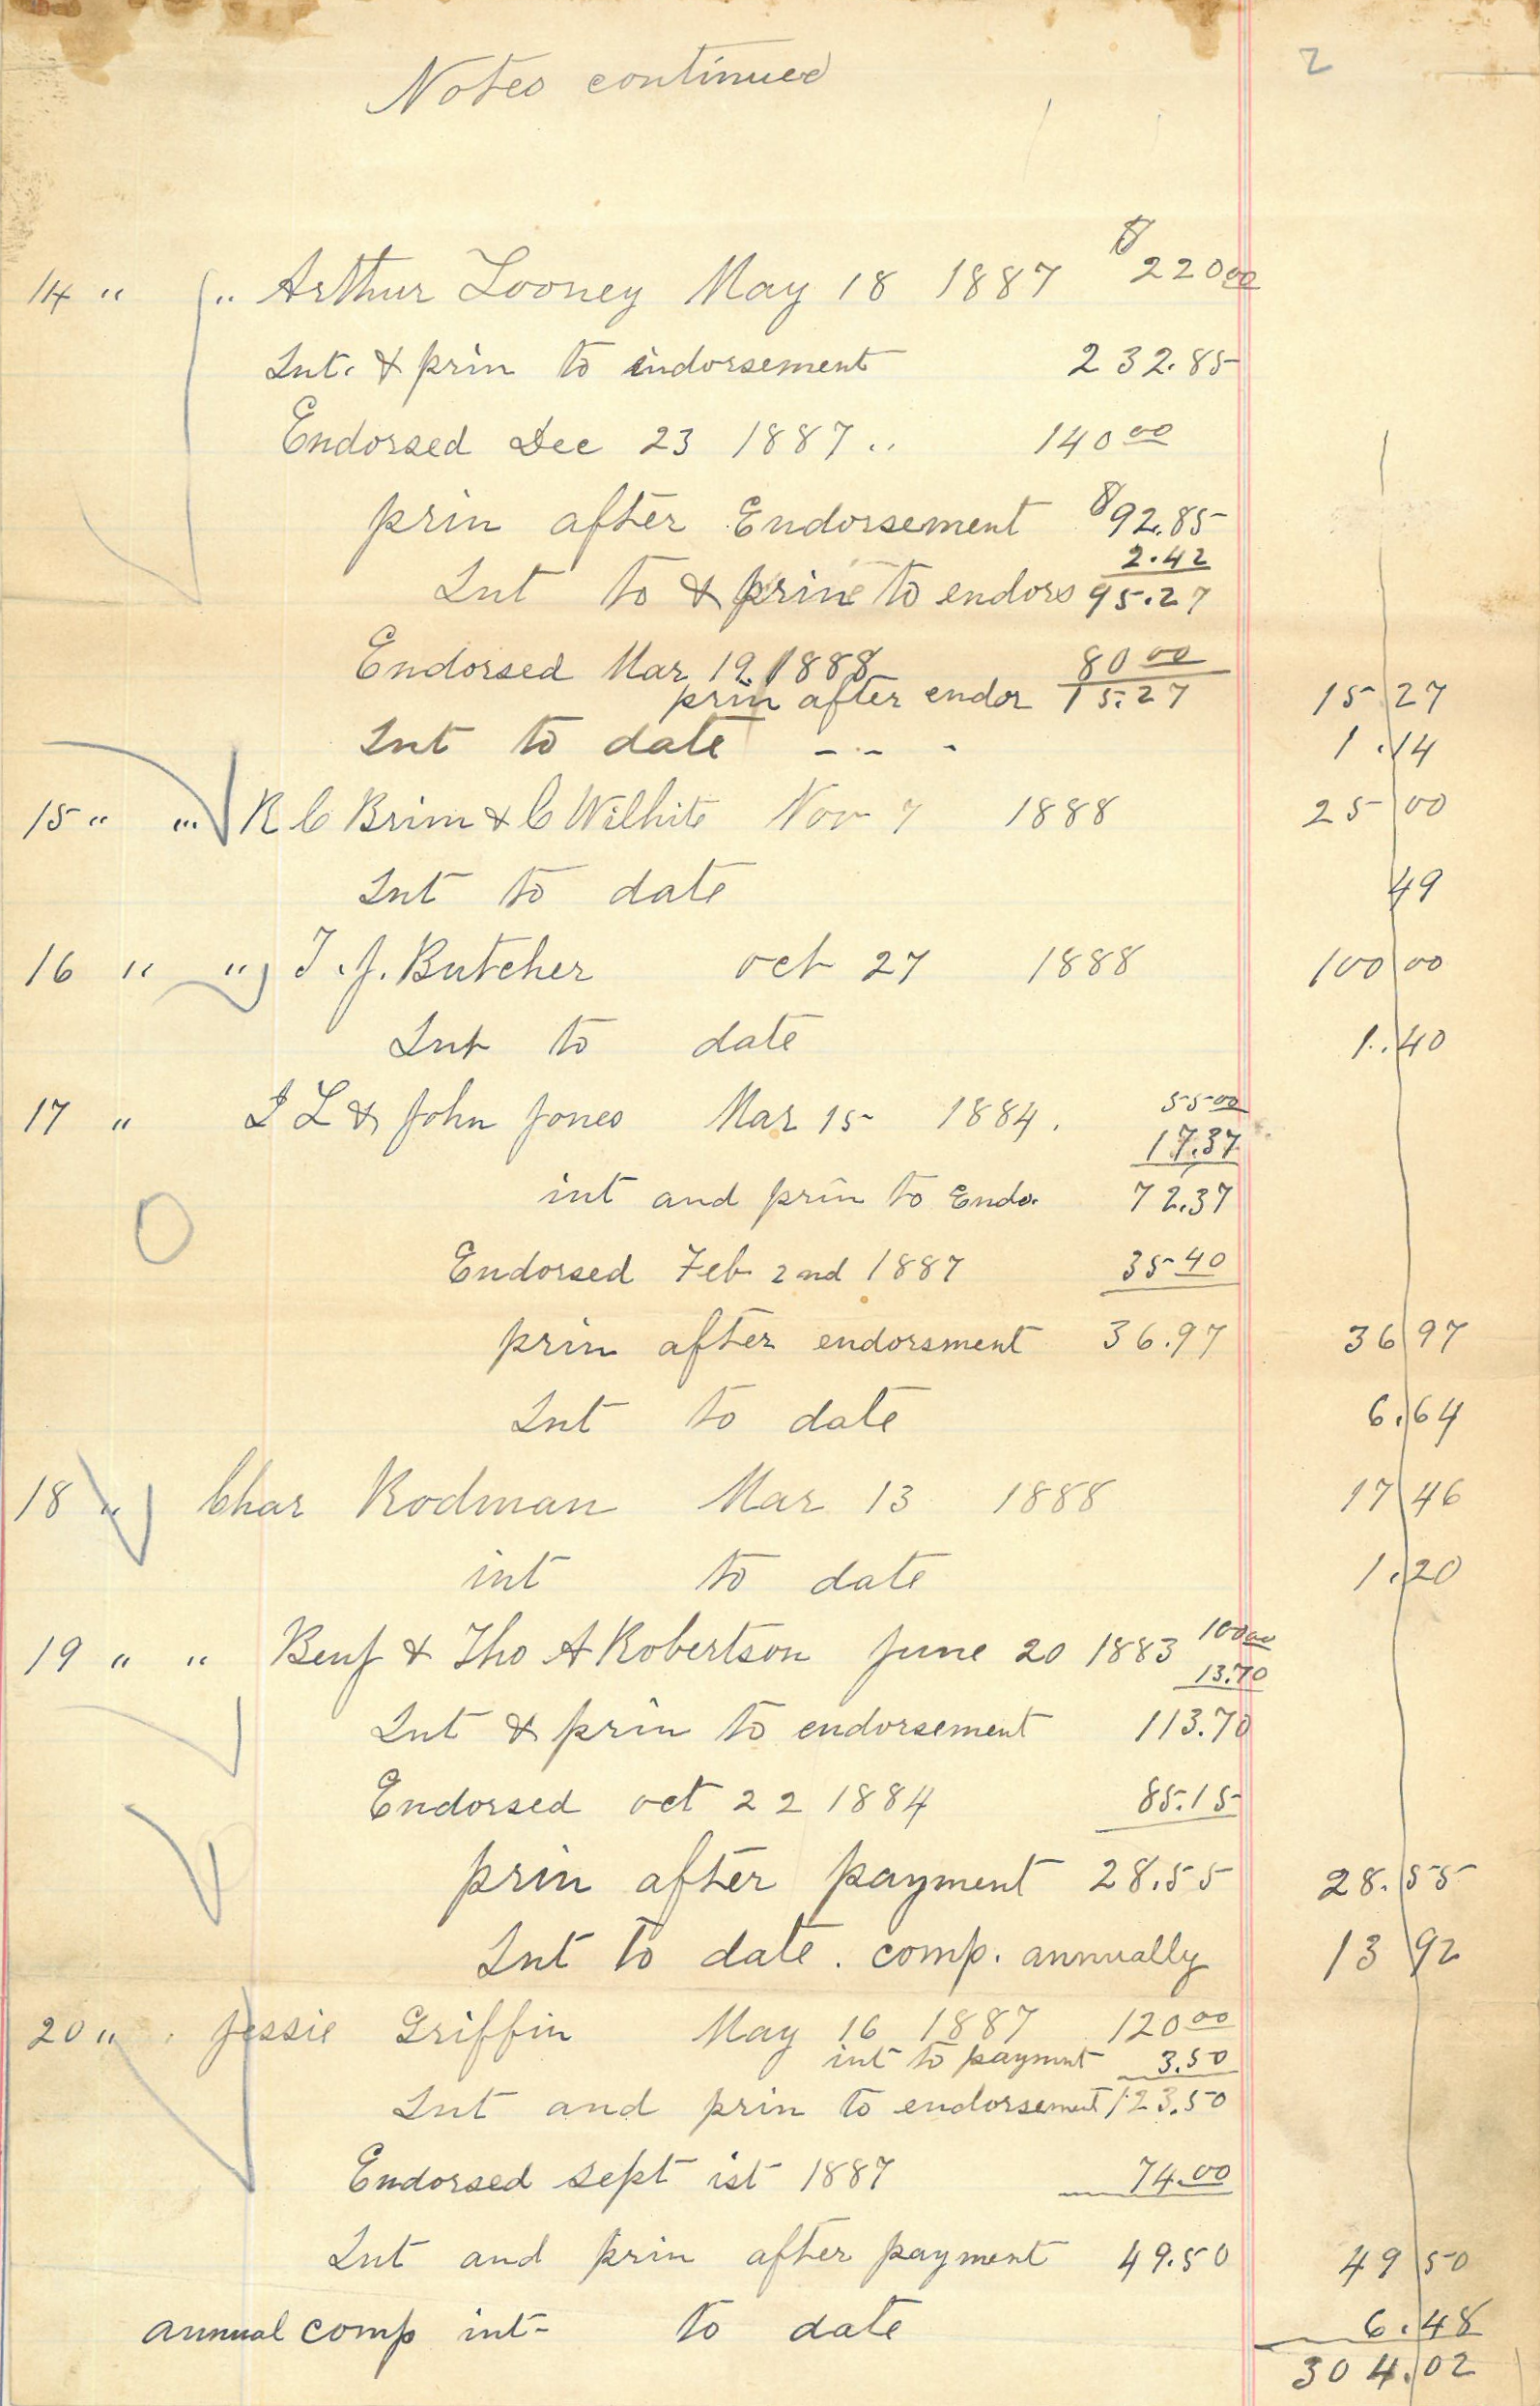 Notes continued 2
14 " " Arthur Looney May 18 1887 $220 00
Int. & prin to indorsement 232.85
Endorsed Dec 23 1887 .. 140 00
prin after Endorsement $92.85
2.42
Int to & prin to endors 95.27
Endorsed Mar 19 1888 80 00
prin after endor 15.27 15 27
Int to date - - - 1.14
15 " " R C Brim & C Wilhite Nov 7 1888 25 00
Int to date 49
16 " " T. J. Butcher oct 27 1888 100 00
Int to date 1.40
17 " I L & John Jones Mar 15 1884. 55 00
17.37
int and prin to Endo. 72.37
Endorsed Feb 2nd 1887 35 40
prin after endorsment 36.97 36 97
Int to date 6.64
18 " Char Rodman Mar 13 1888 17 46
int to date 1.20
19 " " Benj & Tho A Robertson June 20 1883 100 00
13.70
Int & prin to endorsement 113.70
Endorsed oct 22 1884 85.15
prin after payment 28.55 28.55
Int to date. comp. annually 13 92
20 " Jessie Griffin May 16 1887 120 00
int to paymnt 3.50
Int and prin to endorsement 123.50
Endorsed sept ist 1887 74.00
Int and prin after payment 49.50 49 50
annual comp int- to date 6.48
304.02